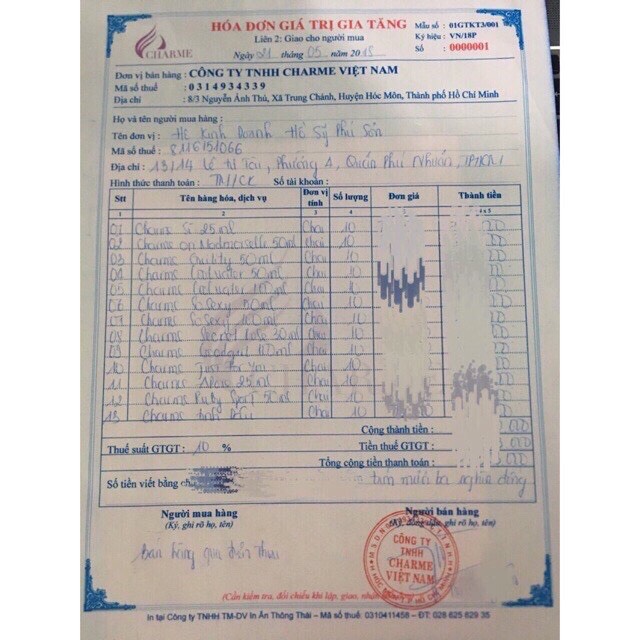 HÓA ĐƠN GIÁ TRỊ GIA TĂNG
Liên 2: Giao cho người mua
Ngày 21 tháng 05 năm 2018
Mẫu số : 01GTKT3/001
Ký hiệu : VN/18P
Số : 0000001
CHARME
Đơn vị bán hàng : CÔNG TY TNHH CHARME VIỆT NAM
Mã số thuế : 0314934339
Địa chỉ : 8/3 Nguyễn Ánh Thủ, Xã Trung Chánh, Huyện Hóc Môn, Thành phố Hồ Chí Minh
Họ và tên người mua hàng :
Tên đơn vị : Hộ Kinh Doanh Hồ Sỹ Phú Sơn
Mã số thuế : 8116151066
Địa chỉ : 13/14 Phường 4, Quận Phú Nhuận, TPHCM
Hình thức thanh toán : TM/CK Số tài khoản :
Stt Tên hàng hóa, dịch vụ Đơn vị tính Số lượng Đơn giá Thành tiền
1 2 3 4 4 x 5
01 Charme Si 25ml Chai 10
02 Charme 50ml chai 10
03 Charme 50ml Chai 10
04 Charme 50ml Chai 10
05 Charme 100ml Chai 10
06 Charme SoSexy 50ml Chai 10
07 Charme SoSexy 100ml Chai 10
08 Charme Secret 30ml Chai 10
09 Charme Goodgirl 100ml Chai 10
10 Charme Just for You Chai 10
11 Charme 25ml Chai 10
12 Charme Ruby 50ml Chai 10
13 Charme Chai 10
Cộng thành tiền :
Thuế suất GTGT : 10 % Tiền thuế GTGT :
Tổng cộng tiền thanh toán :
Số tiền viết bằng tám mươi ba nghìn đồng
Người mua hàng Người bán hàng
(Ký, ghi rõ họ, tên) ghi rõ họ, tên)
Bán hàng qua điện thoại
CÔNG TY
TNHH
CHARME
VIỆT NAM
(Cần kiểm tra, đối chiếu khi lập, giao, nhận
In tại Công ty TNHH TM-DV In Ấn Thông Thái – Mã số thuế: 0310411458 - ĐT: 028 625 829 35